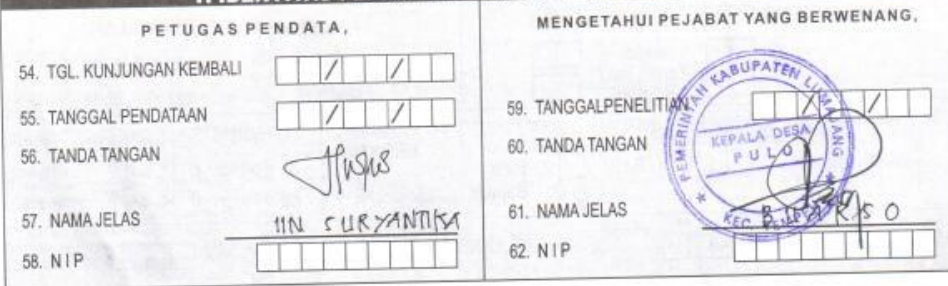 PETUGAS PENDATA,
54. TGL. KUNJUNGAN KEMBALI / /
55. TANGGAL PENDATAAN / /
56. TANDA TANGAN
57. NAMA JELAS IIN SURYANTIKA
58. NIP
MENGETAHUI PEJABAT YANG BERWENANG,
59. TANGGALPENELITIAN / /
60. TANDA TANGAN
61. NAMA JELAS
62. NIP
PEMERINTAH KABUPATEN LUMAJANG
KEPALA DESA
PULO
KEC.